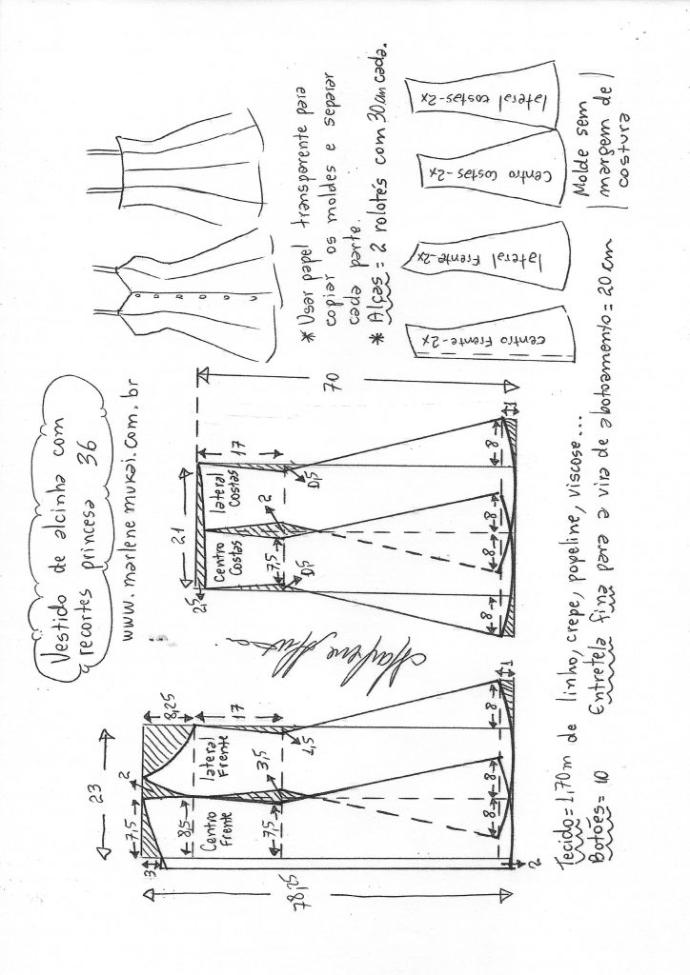 Vestido de alcinha com
recortes princesa 36
www.marlenemukai.com.br
* Usar papel transparente para
copiar os moldes e separar
cada parte.
* Alças = 2 rolotés com 30cm cada.
23
7,5
2
3
8,25
17
8,5
Centro
Frente
lateral
Frente
7,5
3,5
1,5
78,25
8
8
8
1
2
Marlene Mukai
21
2,5
17
70
Centro
Costas
lateral
Costas
7,5
2
0,5
0,5
8
8
8
8
1
centro Frente-2x
lateral Frente-2x
Centro Costas-2x
lateral costas-2x
Molde sem
margem de
costura
Tecido=1,70m de linho, crepe, popeline, viscose...
Botões= 10 Entretela fina para a vira de abotoamento= 20 cm